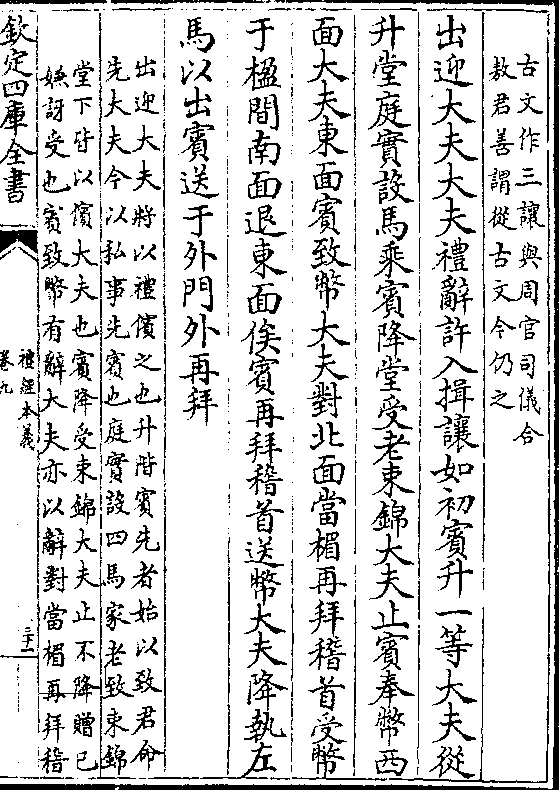 古文作三讓與周官司儀合
敖君善謂從古文今仍之
出迎大夫大夫禮辭許入揖讓如初賓升一等大夫從
升堂庭實設馬乘賓降堂受老束錦大夫止賓奉幣西
面大夫東面賓致幣大夫對北面當楣再拜稽首受幣
于楹間南面退東面俟賓再拜稽首送幣大夫降執左
馬以出賓送于外門外再拜
出迎大夫將以禮儐之也升階賓先者始以致君命
先大夫今以私事先賓也庭實設四馬家老致束錦
堂下皆以儐大夫也賓降受束錦大夫止不降贈已
嫌訝受也賓致幣有辭大夫亦以辭對當楣再拜稽
欽定四庫全書
禮經本義
卷九
二十一